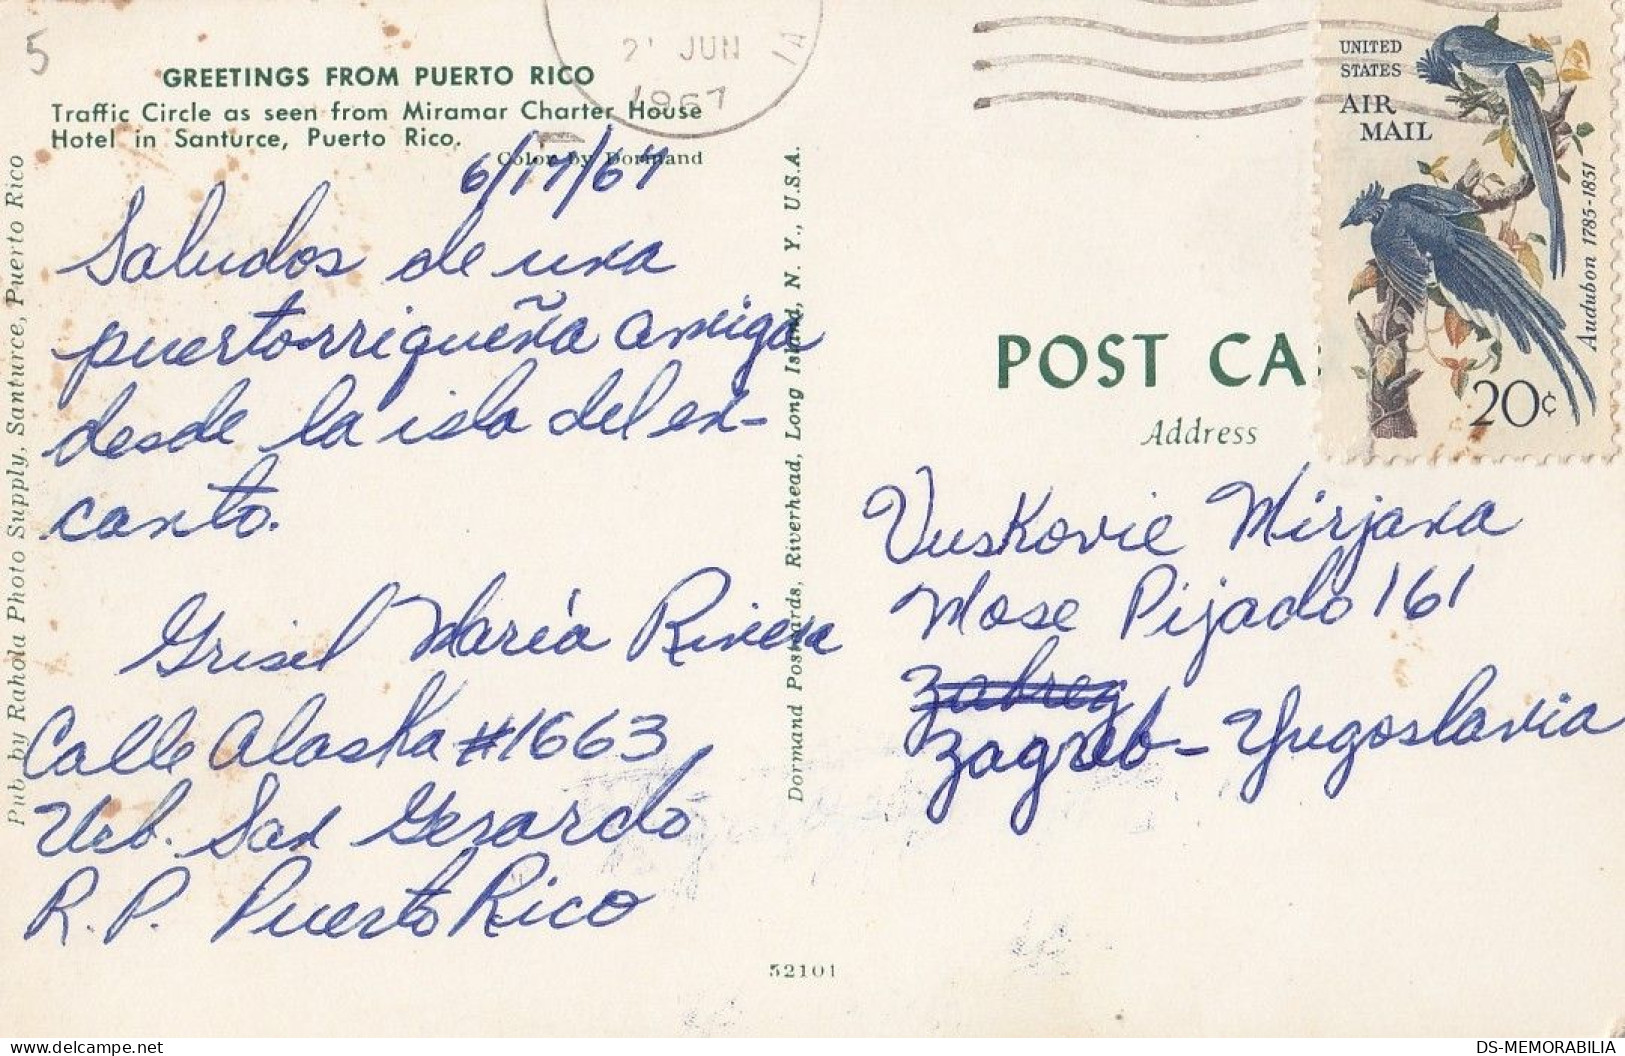 5
GREETINGS FROM PUERTO RICO
Traffic Circle as seen from Miramar Charter House
Hotel in Santurce, Puerto Rico.
Color by Dormand
6/17/67
Saludos de una
puertorriqueña amiga
desde la isla del en-
canto.
Grisel María Rivera
Calle Alaska #1663
Urb. San Gerardo
R.P. Puerto Rico
Pub by Rahola Photo Supply, Santurce, Puerto Rico
Dormand Postcards, Riverhead, Long Island, N. Y., U.S.A.
52101
21 JUN
1967
UNITED
STATES
AIR
MAIL
Audubon 1785-1851
20¢
POST CA
Address
Vuskovic Mirjana
Mose Pijado 161
Zabreg
Zagreb - Yugoslavia
DS-MEMORABILIA